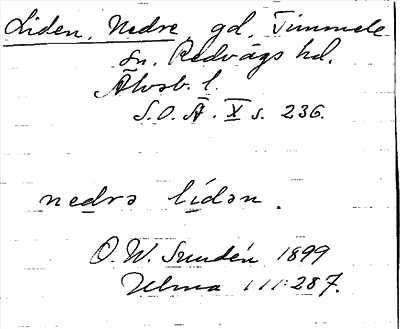 Liden, Nedre, gd, Timmele
sn. Redvägs hd.
Älvsb. l.
S.O.Ä. X s. 236.
nedrə lídən.
O. W. Sundén 1899
Ulma 111:287.